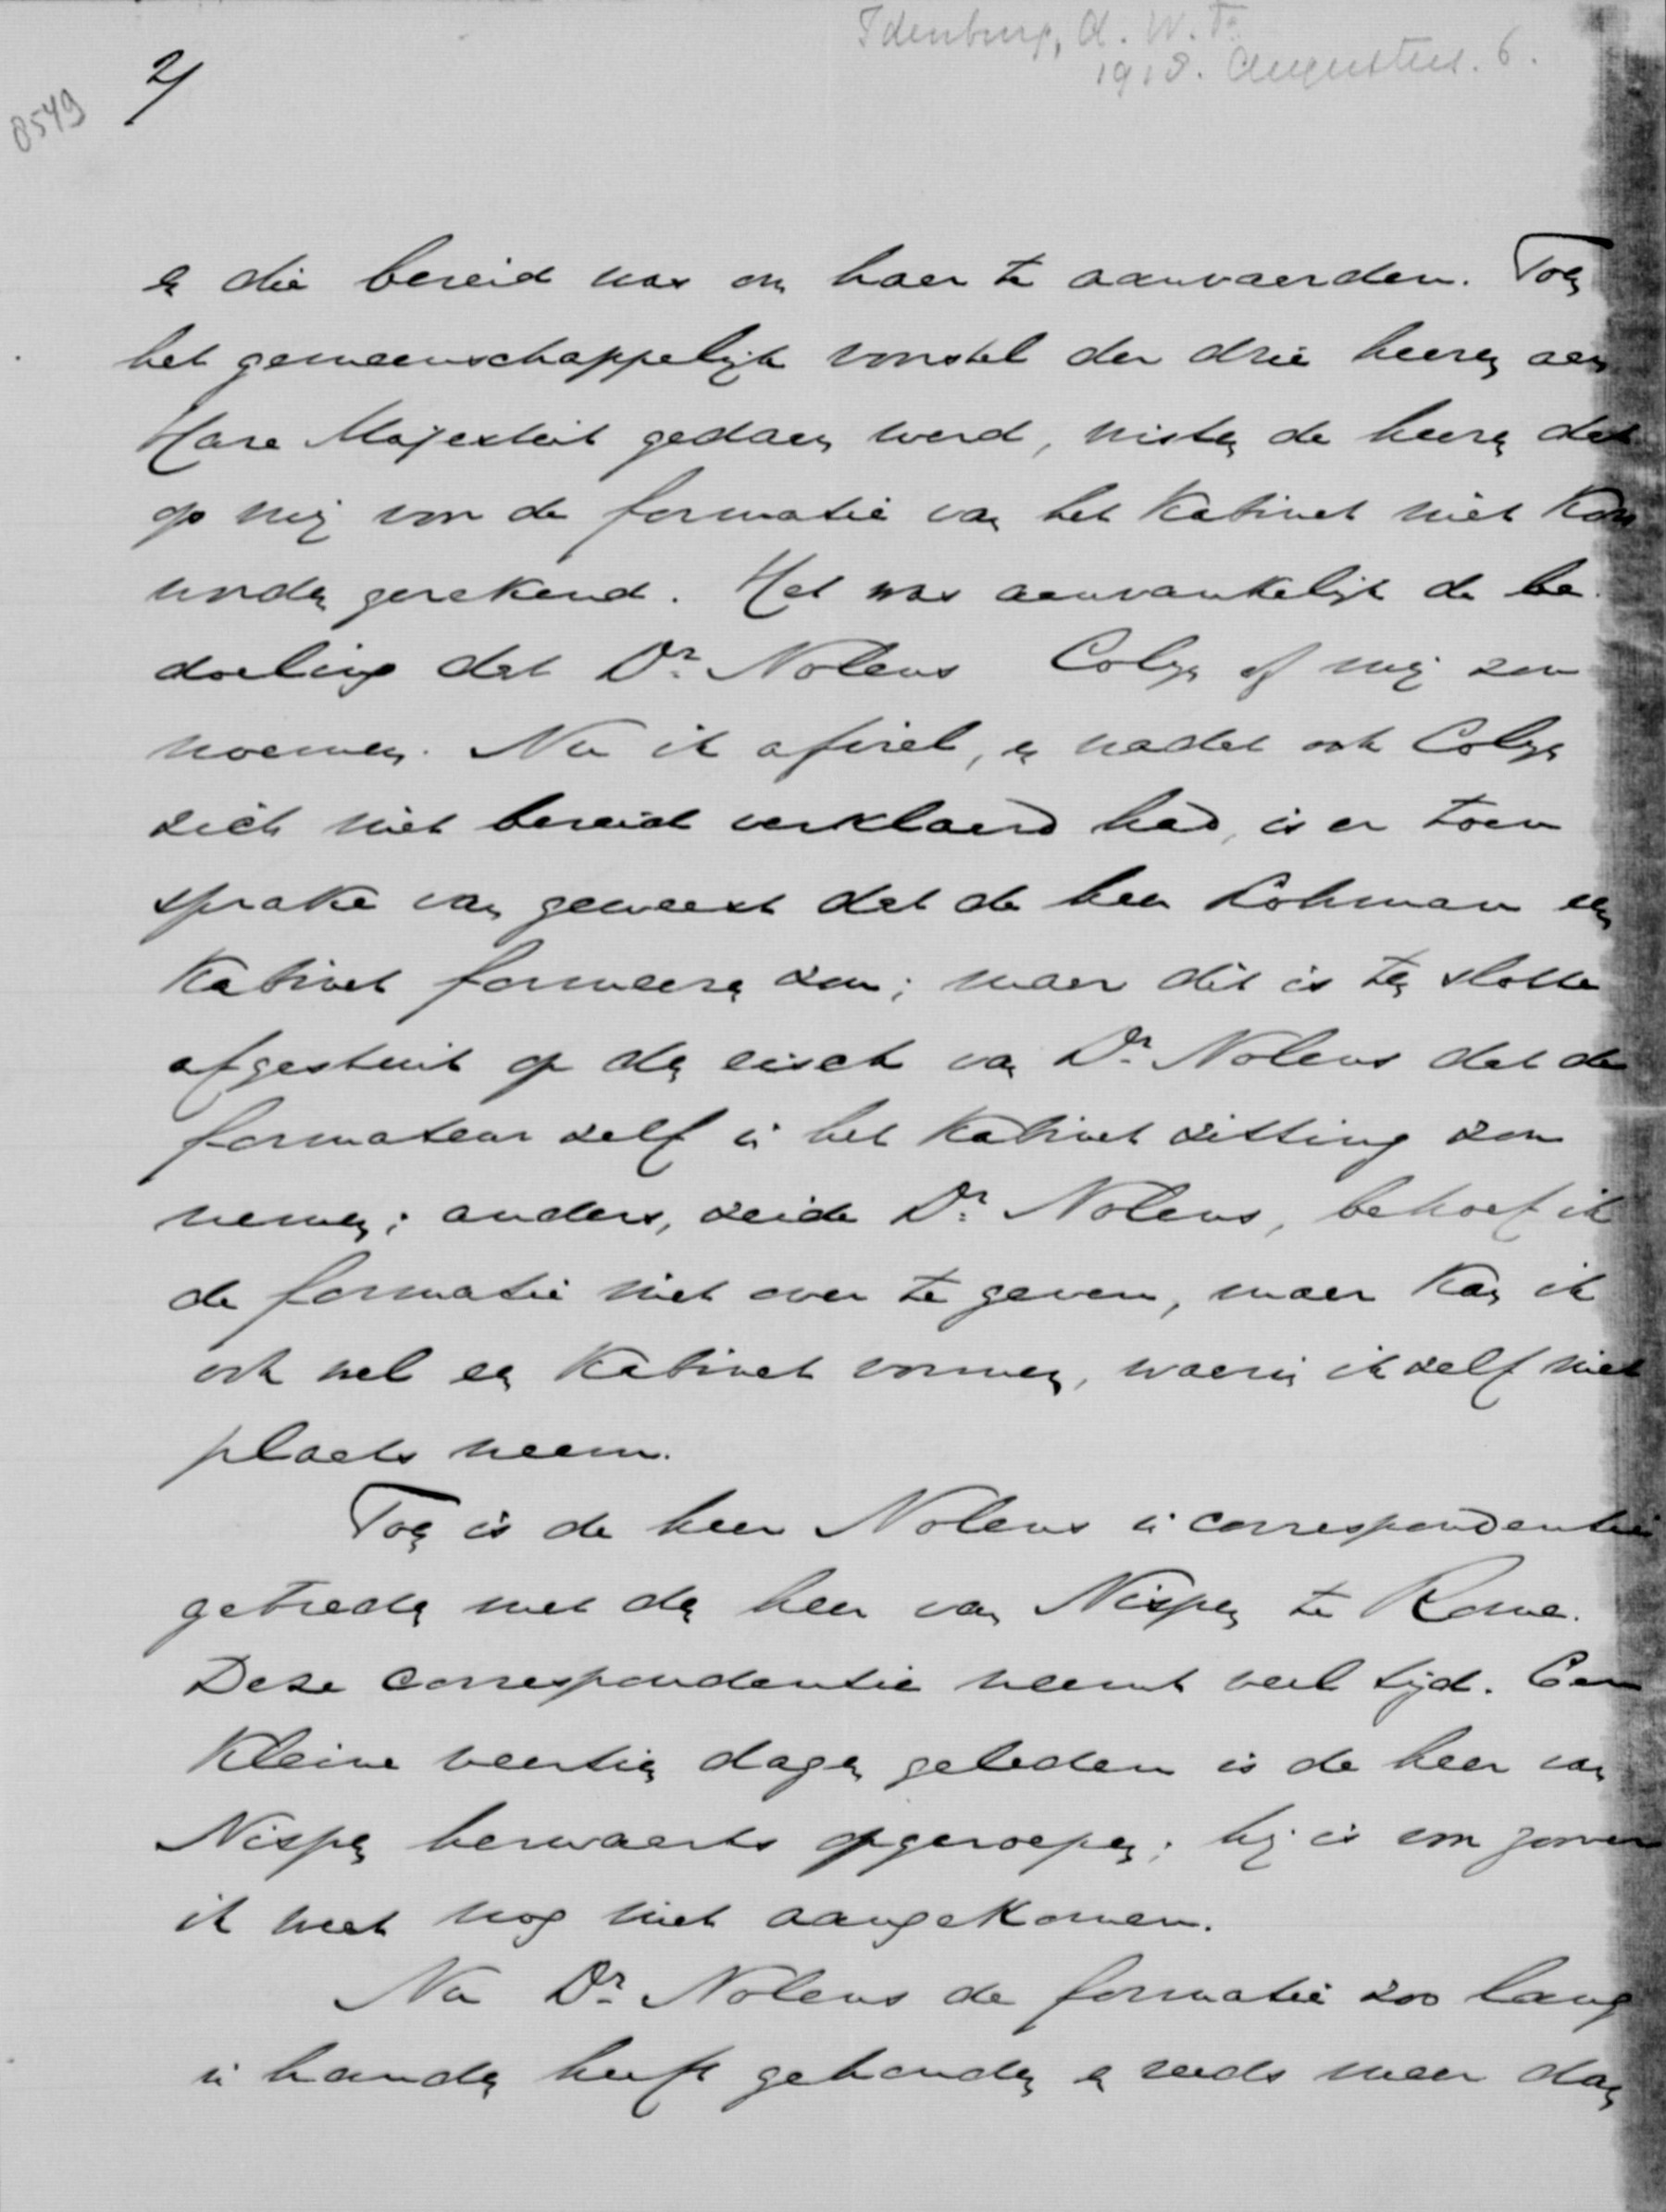 Idenburg, A. W. F.
1918. Augustus. 6.
8549
2/
en die bereid was om haar te aanvaarden. Toen
het gemeenschappelijk voorstel der drie heeren aan
Hare Majesteit gedaan werd, wisten de heeren dat
op mij voor de formatie van het Kabinet niet kon
worden gerekend. Het was aanvankelijk de be-
doeling dat Dr. Nolens Colijn of mij zou
noemen. Nu ik afviel, en nadat ook Colijn
zich niet bereid verklaard had, is er toen
sprake van geweest dat de heer Lohman een
Kabinet formeeren zou; maar dit is ten slotte
afgestuit op den eisch van Dr. Nolens dat de
formateur zelf in het Kabinet zitting zou
nemen; anders, zeide Dr. Nolens, behoef ik
de formatie niet over te geven, maar kan ik
ook wel een Kabinet vormen, waarin ik zelf niet
plaats neem.
Toen is de heer Nolens in correspondentie
getreden met den heer van Nispen te Rome.
Deze correspondentie neemt veel tijd. Een
kleine veertien dagen geleden is de heer van
Nispen herwaarts opgeroepen; hij is voor zoover
ik weet nog niet aangekomen.
Nu Dr. Nolens de formatie zoo lang
in handen heeft gehouden en reeds meer dan